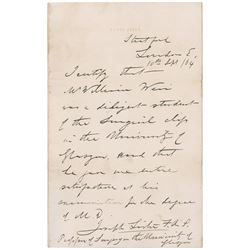 Stratford
London E.
10th Sept/64
I certify that
Mr William Weir
was a diligent student
of the Surgical class
in the University of
Glasgow, and that
he gave me entire
satisfaction at his
examination for the degree
of M.D.
Joseph Lister F.R.S.
Professor of Surgery in the University of
Glasgow